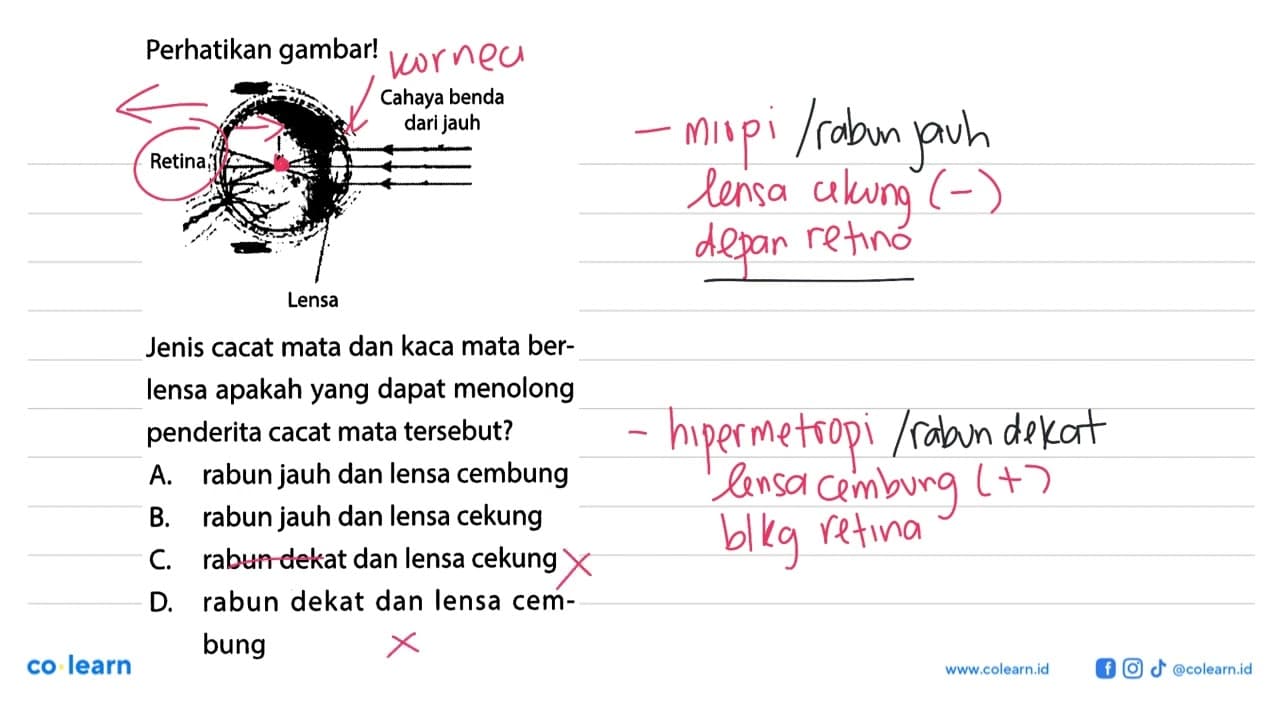 Perhatikan gambar!
kornea
Cahaya benda
dari jauh
Retina
Lensa
Jenis cacat mata dan kaca mata ber-
lensa apakah yang dapat menolong
penderita cacat mata tersebut?
A. rabun jauh dan lensa cembung
B. rabun jauh dan lensa cekung
C. rabun dekat dan lensa cekung
D. rabun dekat dan lensa cem-
bung
- miopi /rabun jauh
lensa cekung (-)
depan retina
- hipermetropi /rabun dekat
lensa cembung (+)
blkg retina
co learn
www.colearn.id
@colearn.id